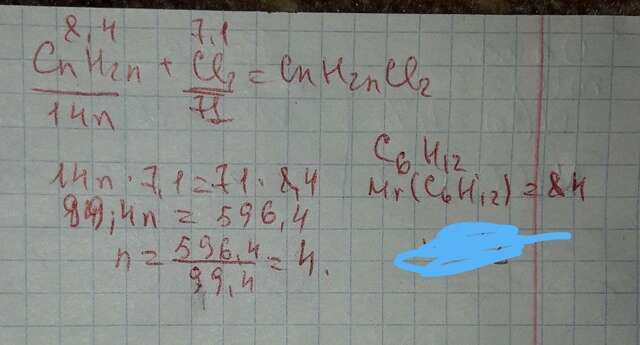 8,4 7,1
CnH2n + Cl2 = CnH2nCl2
14n 71
14n · 7,1 = 71 · 8,4
99,4n = 596,4
n = 596,4 / 99,4 = 4.
C6H12
Mr(C6H12) = 84